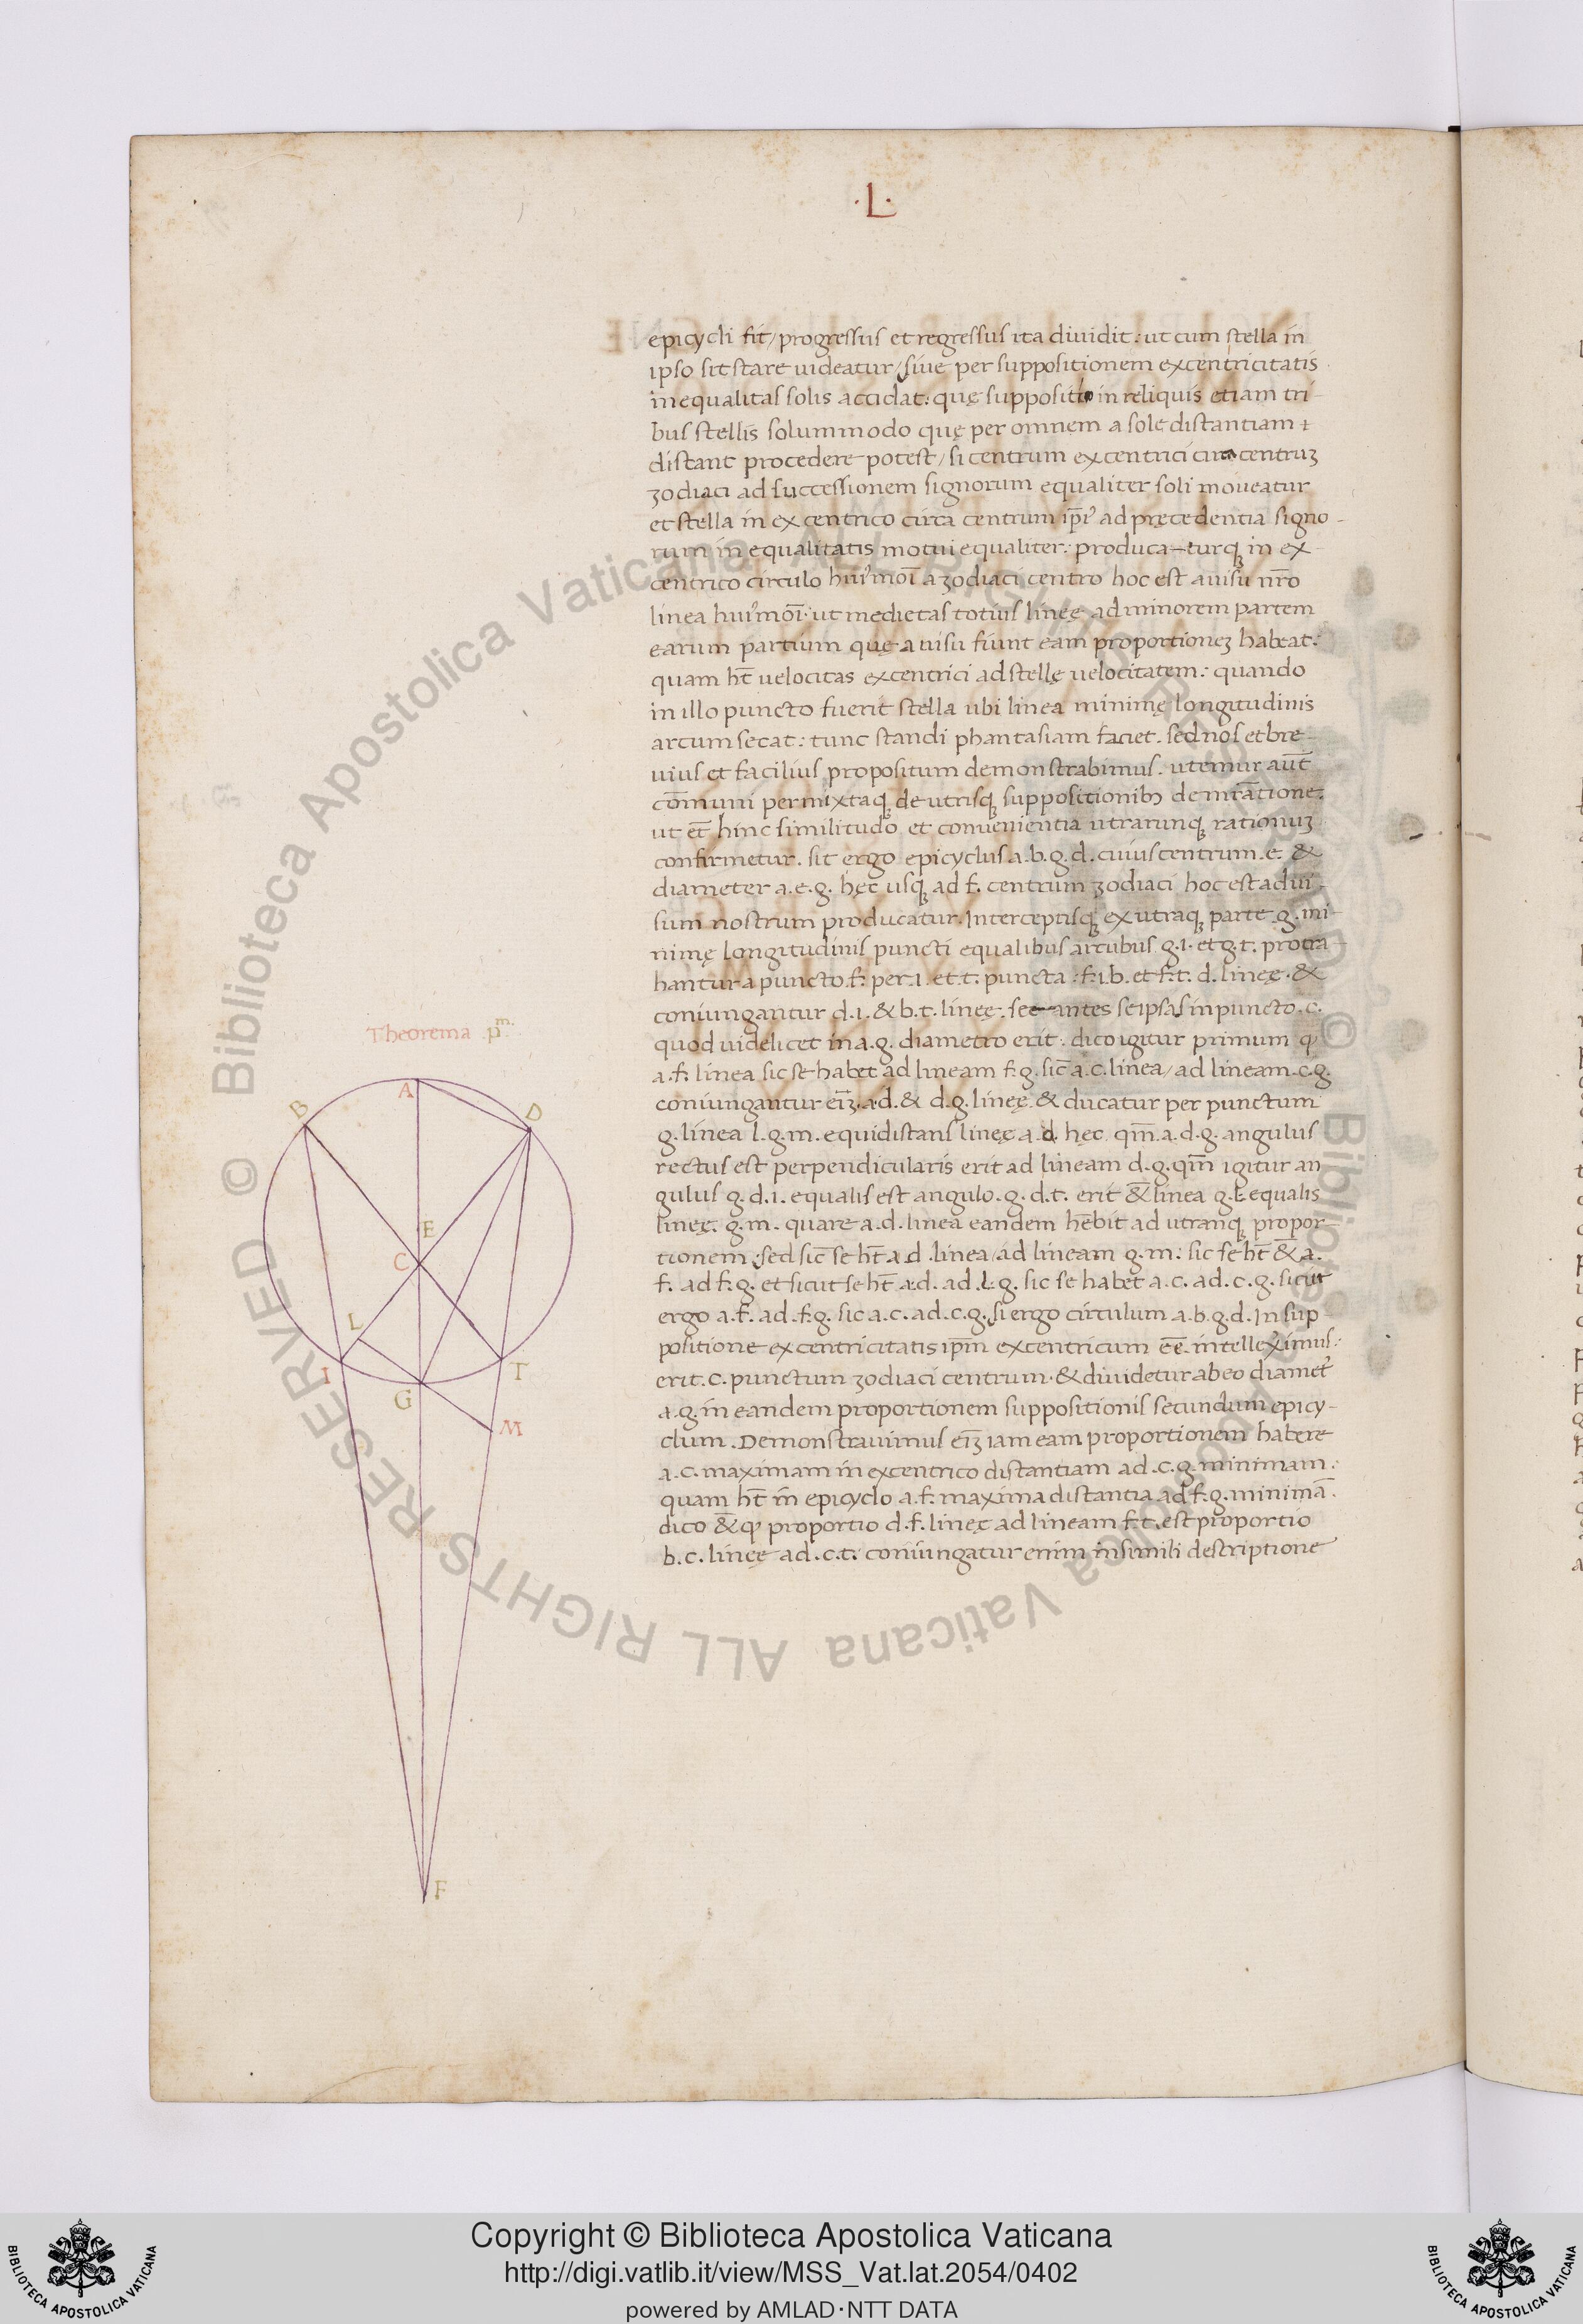 ·L·
epicycli fit/ progressus et regressus ita diuidit: ut cum stella in
ipso sit stare uideatur/ siue per suppositionem excentricitatis
inequalitas solis accidat: quę suppositio in reliquis etiam tri-
bus stellis solummodo quę per omnem a sole distantiam
distant procedere potest/ si centrum excentrici circa centruʒ
ʒodiaci ad successionem signorum equaliter soli moueatur
et stella in excentrico circa centrum ip̄iꝰ ad pręcedentia signo-
rum inequalitatis motui equaliter: producaturqꝫ in ex-
centrico circulo huiꝰmōi a ʒodiaci centro hoc est a uisu nr̄o
linea huiꝰmōi: ut medietas totius lineę ad minorem partem
earum partium quę a uisu fiunt eam proportioneʒ habeat:
quam ht̄ uelocitas excentrici ad stellę uelocitatem: quando
in illo puncto fuerit stella ubi linea minimę longitudinis
arcum secat: tunc standi phantasiam faciet. sed nos et bre-
uius et facilius propositum demonstrabimus. utemur aut̄
cōmuni permixtaqꝫ de utrisqꝫ suppositionibꝫ demr̄atione:
ut et̄ hinc similitudo et conuenientia utrarunqꝫ rationuʒ
confirmetur. sit ergo epicyclus a.b.g.d. cuius centrum .e. &
diameter a.e.g. hęc usqꝫ ad f. centrum ʒodiaci hoc est ad ui-
sum nostrum producatur. Interceptisqꝫ ex utraqꝫ parte g. mi-
nimę longitudinis puncti equalibus arcubus g.i. et g.t. protra-
hantur a puncto .f. per .i. et .t. puncta .f.i.b. et f.t. d. lineę. &
coniungantur d.i. & b.t. lineę. secantes seipsas in puncto .c.
quod uidelicet in a.g. diametro erit. dico igitur primum ꝙ
a.f. linea sic se habet ad lineam f.g. sic̄ a.c. linea/ ad lineam .c.g.
coniungantur eiʒ̄. a.d. & d.g. lineę. & ducatur per punctum
g. linea l.g.m. equidistans lineę a.d. hęc qm̄ a.d.g. angulus
rectus est perpendicularis erit ad lineam d.g. qm̄ igitur an
gulus g.d.i. equalis est angulo .g.d.t. erit &̄ linea g.l. equalis
lineę. g.m. quare a.d. linea eandem hēbit ad utranqꝫ propor-
tionem: sed sic̄ se ht̄ a.d. linea/ ad lineam g.m: sic se ht̄ &̄ a.
f. ad f.g. et sicut se ht̄ a.d. ad .l.g. sic se habet a.c. ad .c.g. sicut
ergo a.f. ad .f.g. sic a.c. ad .c.g. si ergo circulum a.b.g.d. In sup-
positione excentricitatis ip̄m excentricum eē. intellexімus:
erit .c. punctum ʒodiaci centrum. & diuidetur ab eo diamet̉
a.g. in eandem proportionem suppositionis secundum epicy-
clum. Demonstrauimus eiʒ̄ iam eam proportionem habere
a.c. maximam in excentrico distantiam ad .c.g. minimam:
quam ht̄ in epicyclo a.f. maxima distantia ad f.g. minimā.
dico &̄ ꝙ proportio d.f. lineę ad lineam f.t. est proportio
b.c. lineę ad .c.t. coniungatur enim in simili descriptione
Theorema .pᵐ.
A
B
D
E
C
L
I
T
G
M
F
Copyright © Biblioteca Apostolica Vaticana
http://digi.vatlib.it/view/MSS_Vat.lat.2054/0402
powered by AMLAD·NTT DATA
BIBLIOTECA APOSTOLICA VATICANA
BIBLIOTECA APOSTOLICA VATICANA
© Biblioteca Apostolica Vaticana ALL RIGHTS RESERVED © Biblioteca Apostolica Vaticana ALL RIGHTS RESERVED